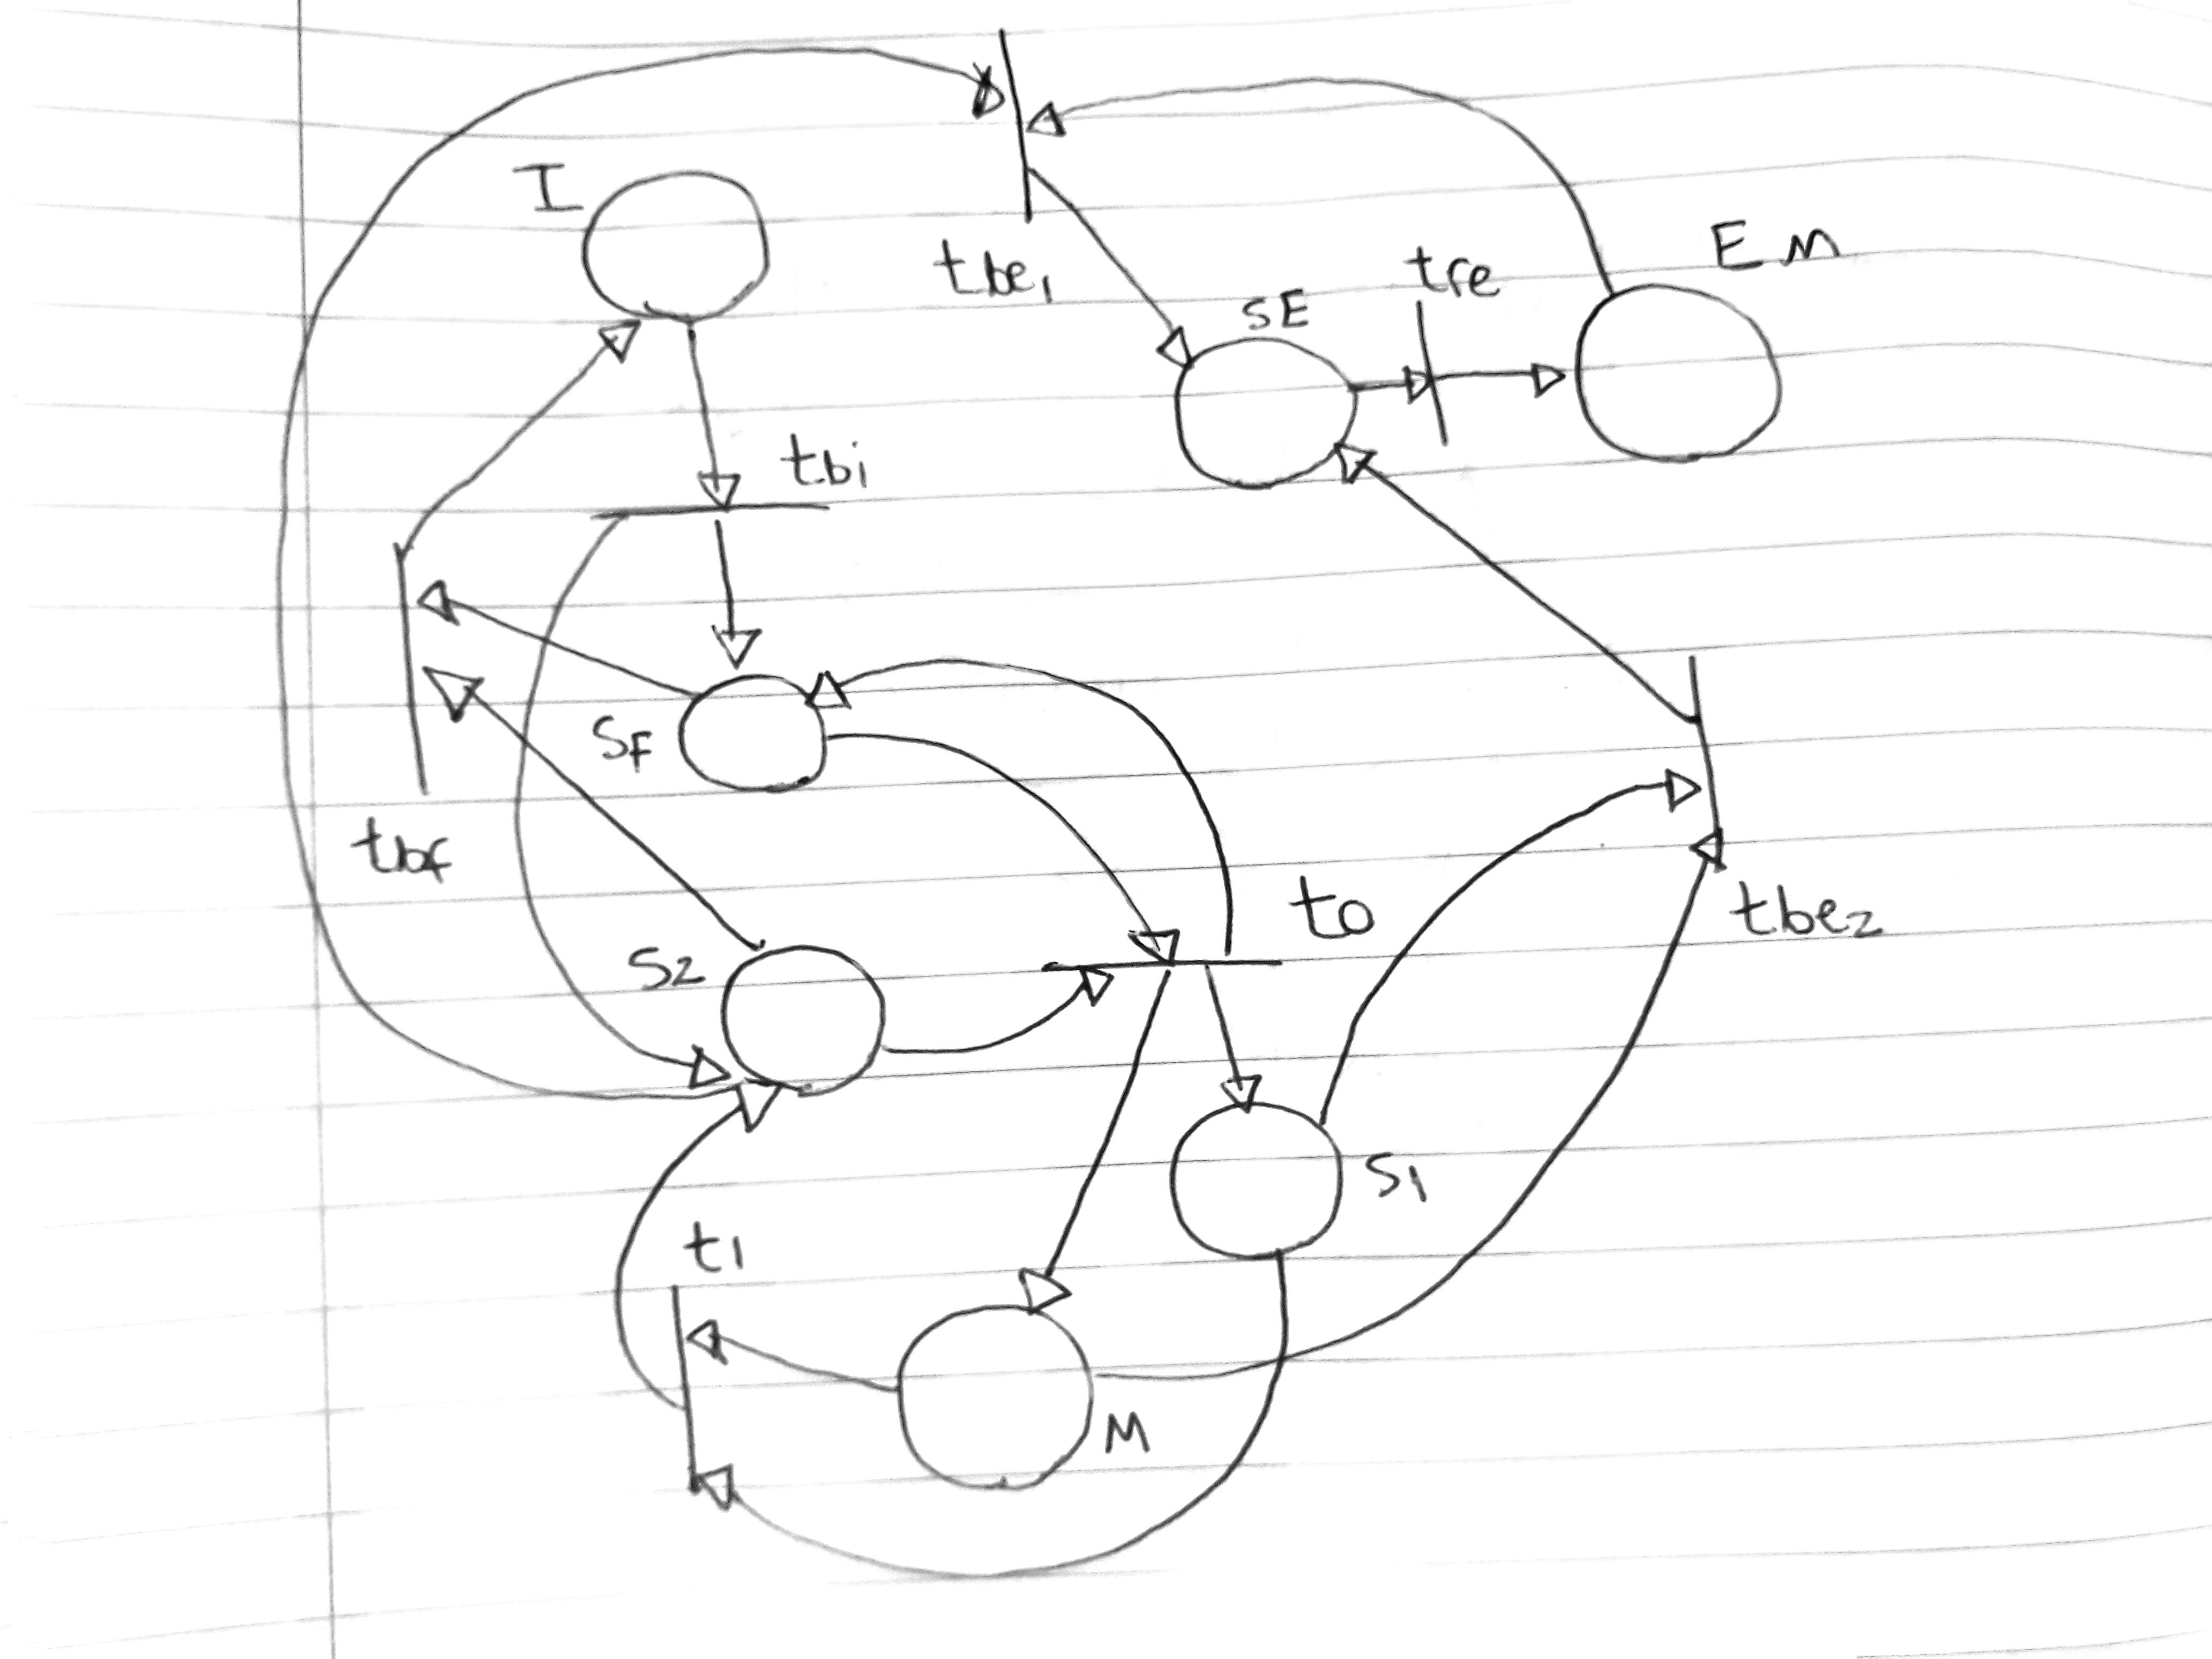 I
tbe1
tre
Em
SE
tbi
SF
tbf
to
tbe2
S2
S1
t1
M